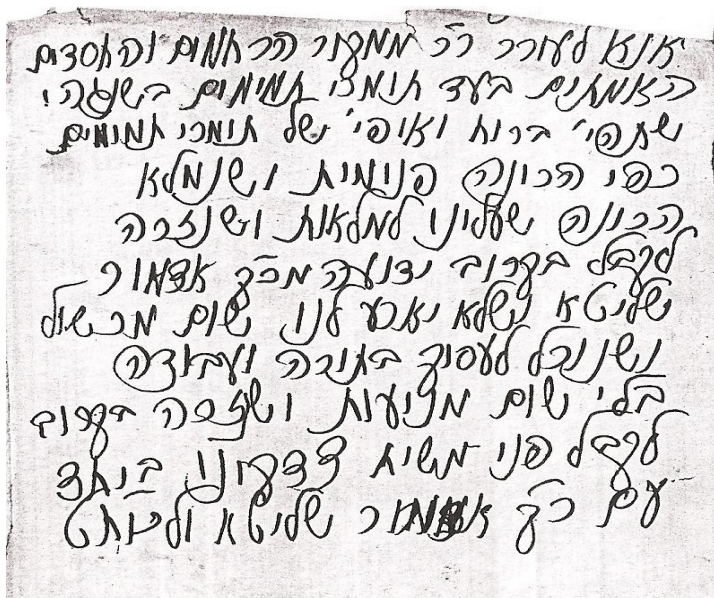 אנא לעורר ר״ר ממקור הרחמים והחסדים
האמתים בעד תומכי תמימים בשנגהי
שתהי' ברוח ואופי' של תומכי תמימים
כפי הכונה פנימית ושנמלא
הכונה שעלינו למלאות ושנזכה
לקבל בקרוב ידועה מכ״ק אדמור
שליטא ושלא יארע לנו שום מכשול
ושנוכל לעסוק בתורה ועבודה
בלי שום מניעות ושנזכה בקרוב
לקבל פני משיח צדקינו ביחד
עם כ״ק אדמור שליטא